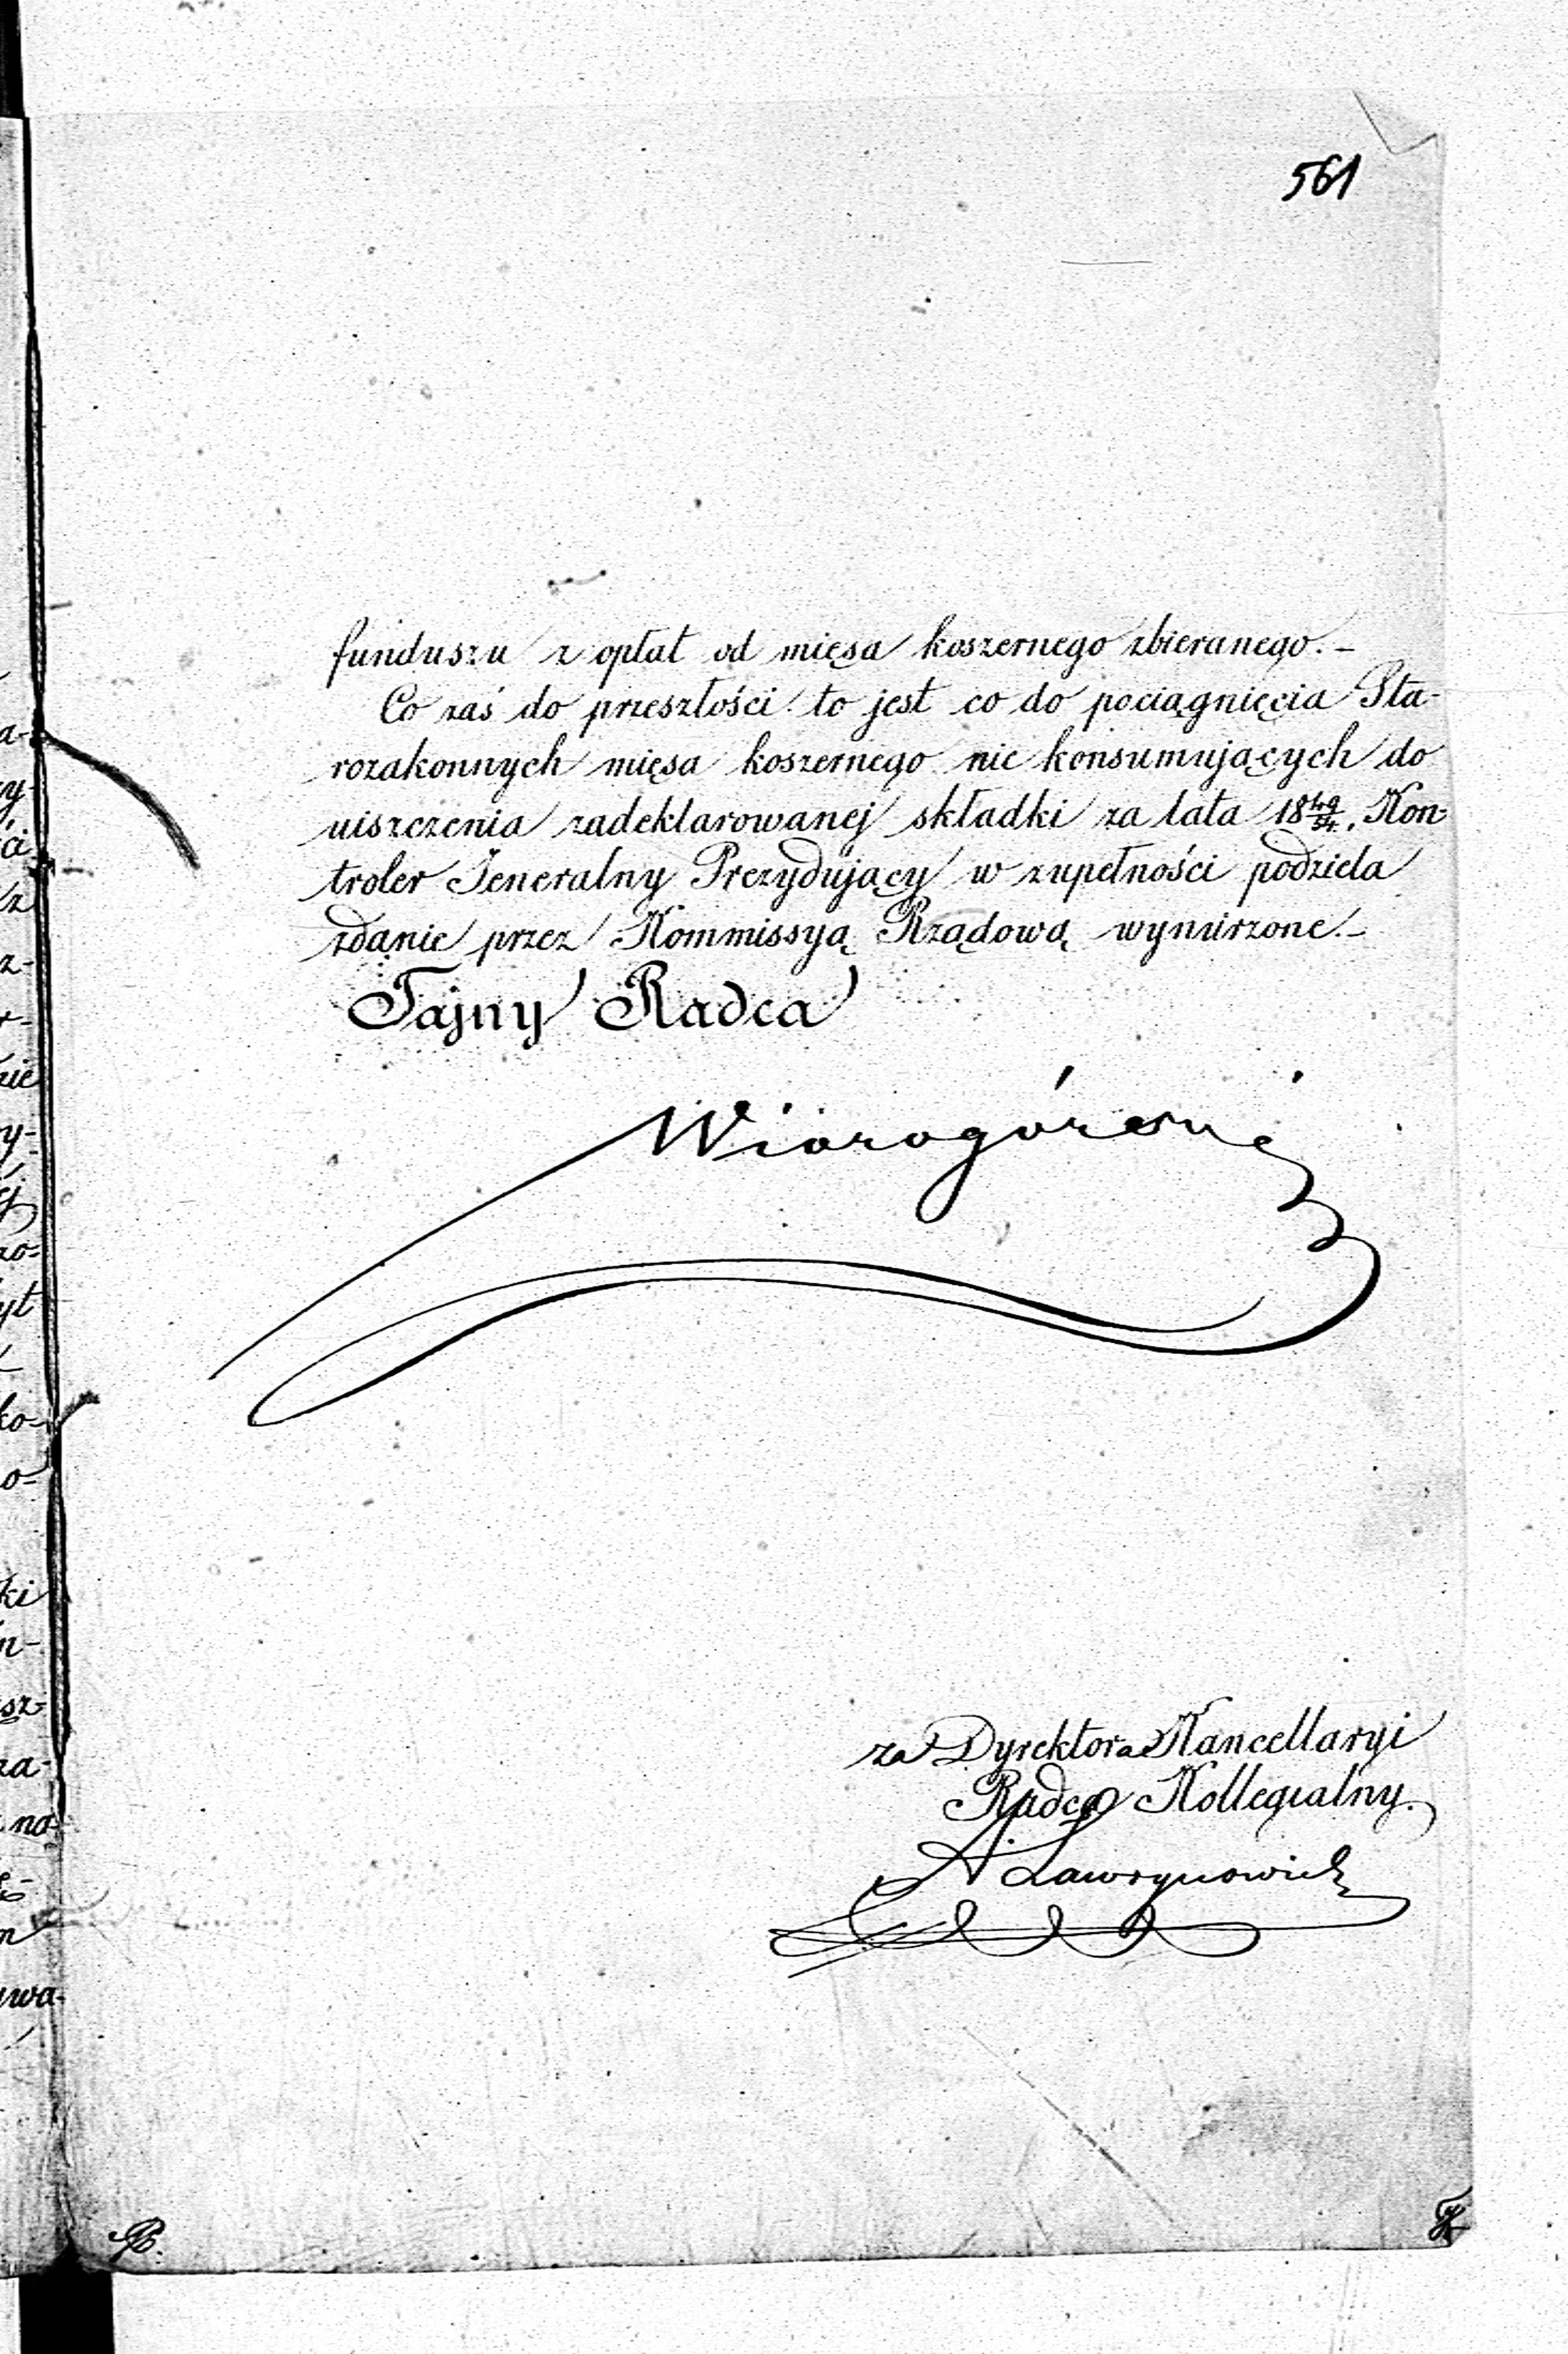 561
funduszu z opłat od mięsa koszernego zbieranego.-
Co zaś do przeszłości to jest co do pociągnięcia Sta-
rozakonnych mięsa koszernego nie konsumujących do
uiszczenia zadeklarowanej składki za lata 18 49/54. Kon-
troler Jeneralny Prezydujący w zupełności podziela
zdanie przez Kommissyą Rządową wynurzone.-
Tajny Radca
za Dyrektora Kancellaryi
Radca Kollegialny.
A. Ławrynowicz